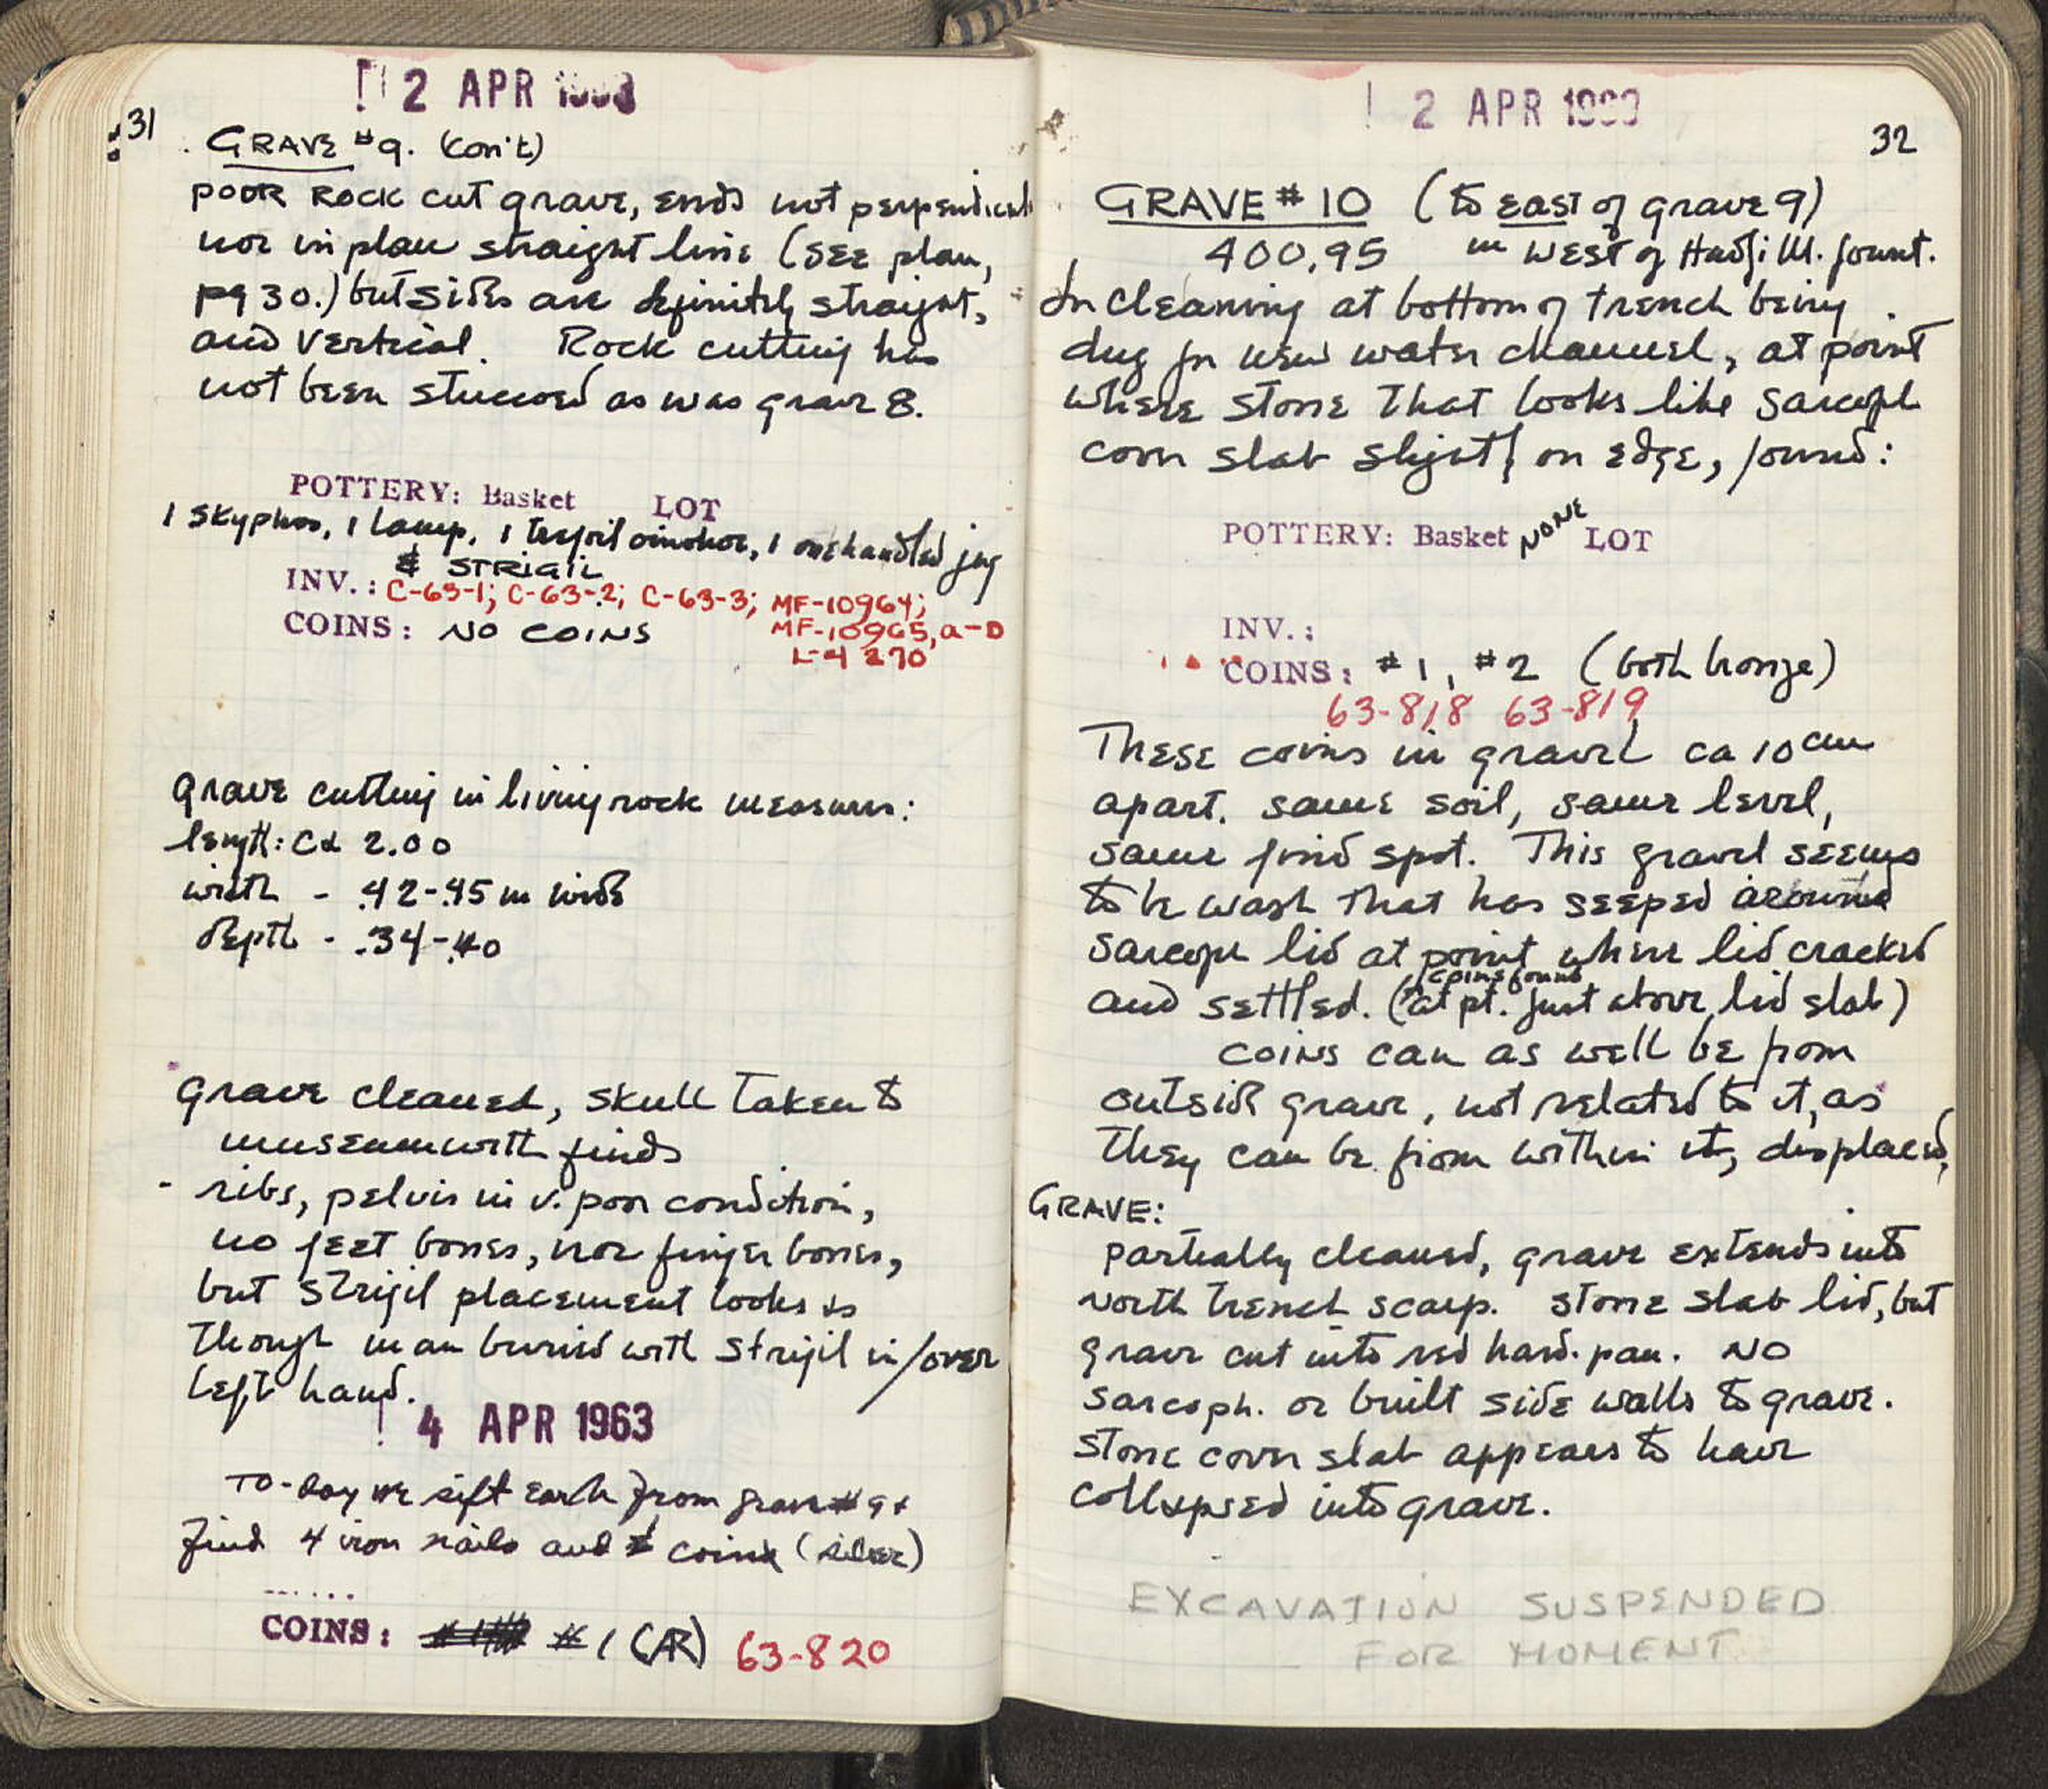 2 APR 1963
31
GRAVE #9. (con't)
POOR ROCK cut grave, ends not perpendicul
nor in plan straight line (SEE plan,
pg 30.) but sides are definitely straight,
and vertical. Rock cutting has
not been stuccoed as was grave 8.
POTTERY: Basket LOT
1 skyphos, 1 lamp, 1 trefoil oinochoe, 1 one handled jug
& STRIGIL
INV.: C-63-1; C-63-2; C-63-3; MF-10964;
MF-10965, a-D
L-4270
COINS: NO COINS
Grave cutting in living rock measures:
length: ca 2.00
width - .42-.45 m wide
depth - .34-.40
Grave cleaned, skull taken to
museum with finds
- ribs, pelvis in v. poor condition,
no feet bones, nor finger bones,
but strigil placement looks as
though man buried with strigil in/over
left hand.
4 APR 1963
To-day we sift earth from grave #9 &
find 4 iron nails and coin (silver)
COINS: #1 (AR) 63-820
2 APR 1963
32
GRAVE #10 (to east of grave 9)
400.95 m WEST of Hadji M. fount.
In cleaning at bottom of trench being
dug for new water channel, at point
where stone that looks like sarcoph
cover slab slightly on edge, found:
POTTERY: Basket NONE LOT
INV.:
COINS: #1, #2 (both bronze)
63-818 63-819
These coins in gravel ca 10 cm
apart. same soil, same level,
same find spot. This gravel seems
to be wash that has seeped around
sarcoph lid at point where lid cracked
coins found
and settled. (at pt. just above lid slab)
coins can as well be from
outside grave, not related to it, as
they can be from within it, displaced,
GRAVE:
partially cleaned, grave extends into
north trench scarp. Stone slab lid, but
grave cut into red hard-pan. NO
sarcoph. or built side walls to grave.
stone cover slab appears to have
collapsed into grave.
EXCAVATION SUSPENDED
FOR MOMENT